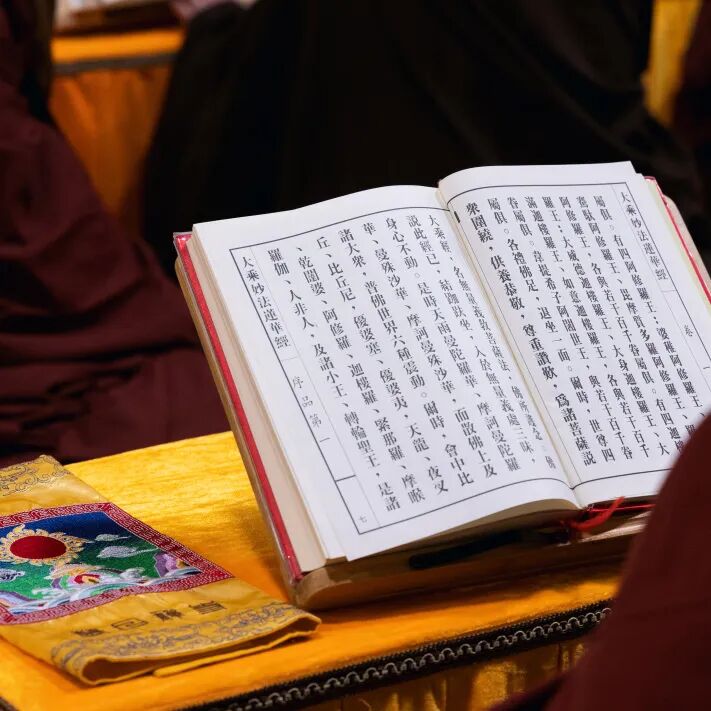 大乘妙法蓮華經 卷一
屬俱。有四阿修羅王、婆稚阿修羅王、
騫馱阿修羅王、毘摩質多羅阿修羅王、
阿修羅王、各與若干百千眷屬俱。有四迦樓
羅王、大威德迦樓羅王、大身迦樓羅王、大
滿迦樓羅王、如意迦樓羅王、各與若干百千
眷屬俱。韋提希子阿闍世王、與若干百千眷
屬俱。各禮佛足、退坐一面。爾時、世尊四
眾圍繞，供養恭敬，尊重讚歎，爲諸菩薩說
大乘經，名無量義教菩薩法，佛所護念。佛
說此經已，結跏趺坐，入於無量義處三昧，
身心不動。是時天雨曼陀羅華、摩訶曼陀羅
華、曼殊沙華、摩訶曼殊沙華，而散佛上及
諸大眾。普佛世界六種震動。爾時，會中比
丘、比丘尼、優婆塞、優婆夷、天龍、夜叉
、乾闥婆、阿修羅、迦樓羅、緊那羅、摩睺
羅伽、人非人、及諸小王、轉輪聖王，是諸
大乘妙法蓮華經 序品第一 七